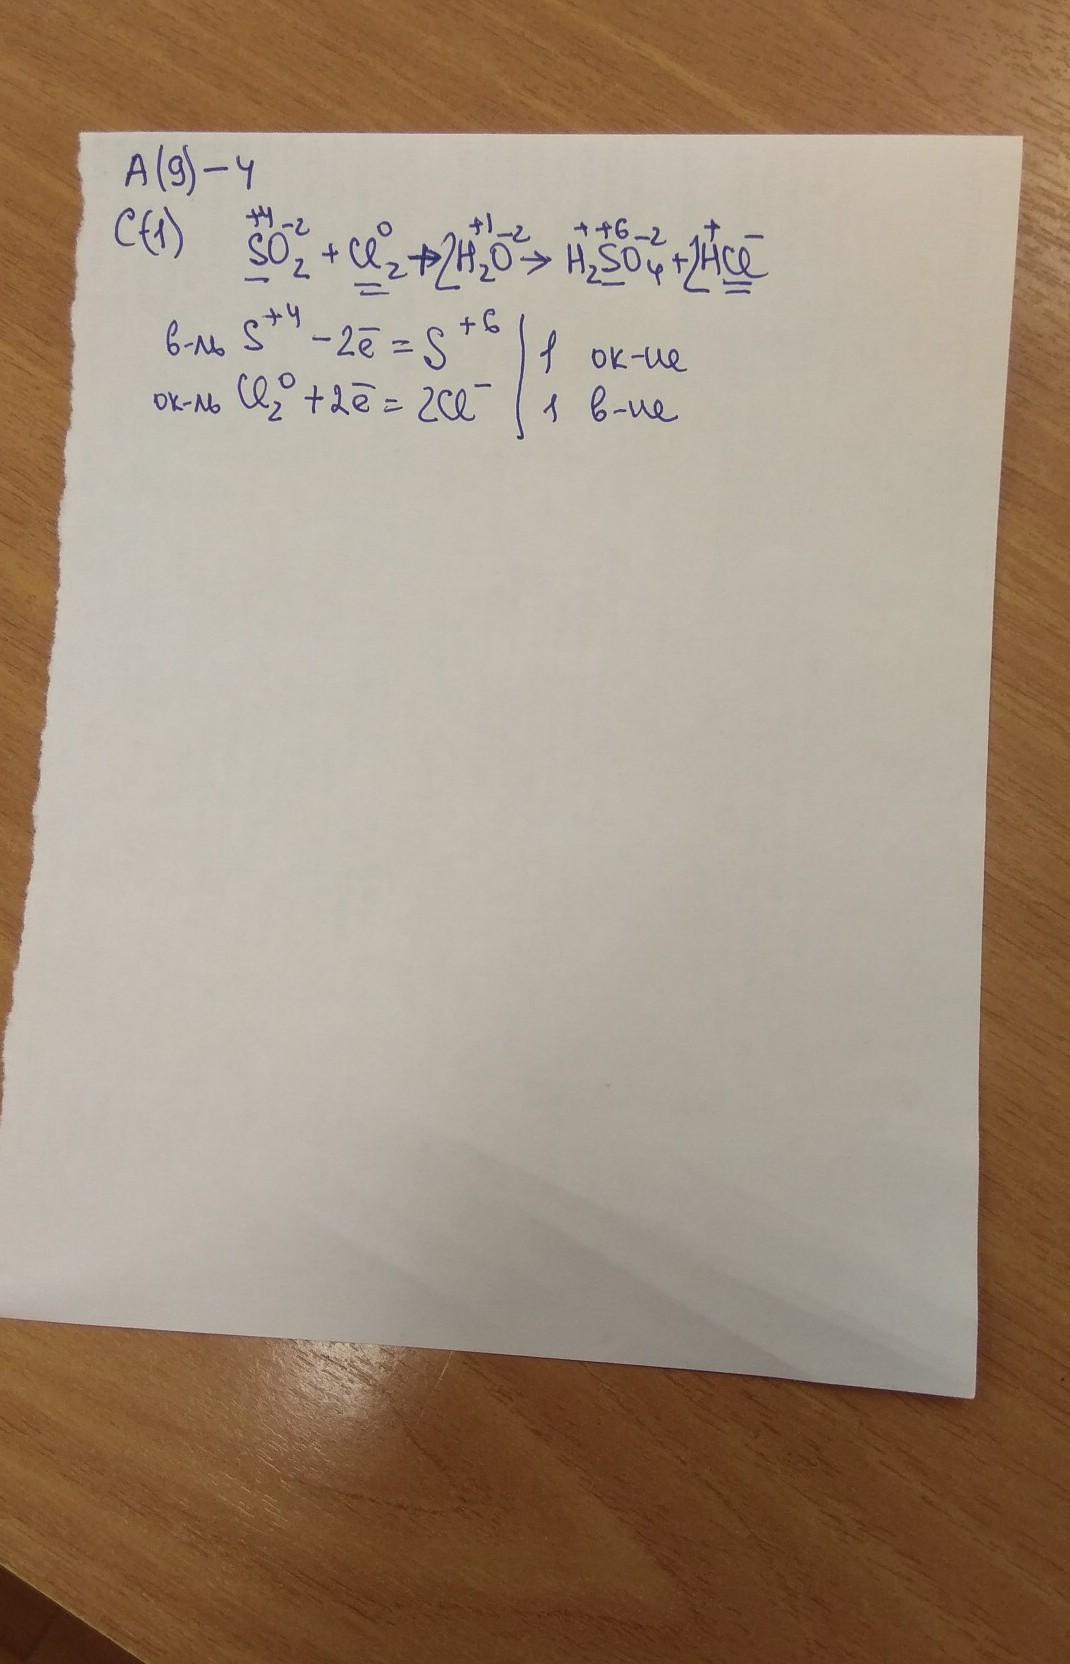 A(9)-4
C(1) S⁺⁴O₂⁻² + Cl₂⁰ + 2H₂⁺¹O⁻² → H₂⁺S⁺⁶O₄⁻² + 2H⁺Cl⁻
в-ль S⁺⁴ - 2ē = S⁺⁶ | 1 ок-ие
ок-ль Cl₂⁰ + 2ē = 2Cl⁻ | 1 в-ие